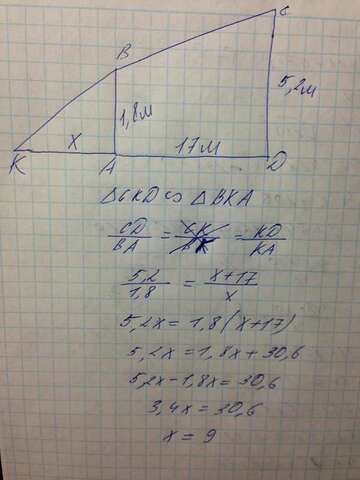 C
B
5,2м
1,8м
K x A 17м D
△CKD ∽ △BKA
CD/BA = CK/BK = KD/KA
5,2/1,8 = x+17/x
5,2x = 1,8(x+17)
5,2x = 1,8x + 30,6
5,2x - 1,8x = 30,6
3,4x = 30,6
x = 9